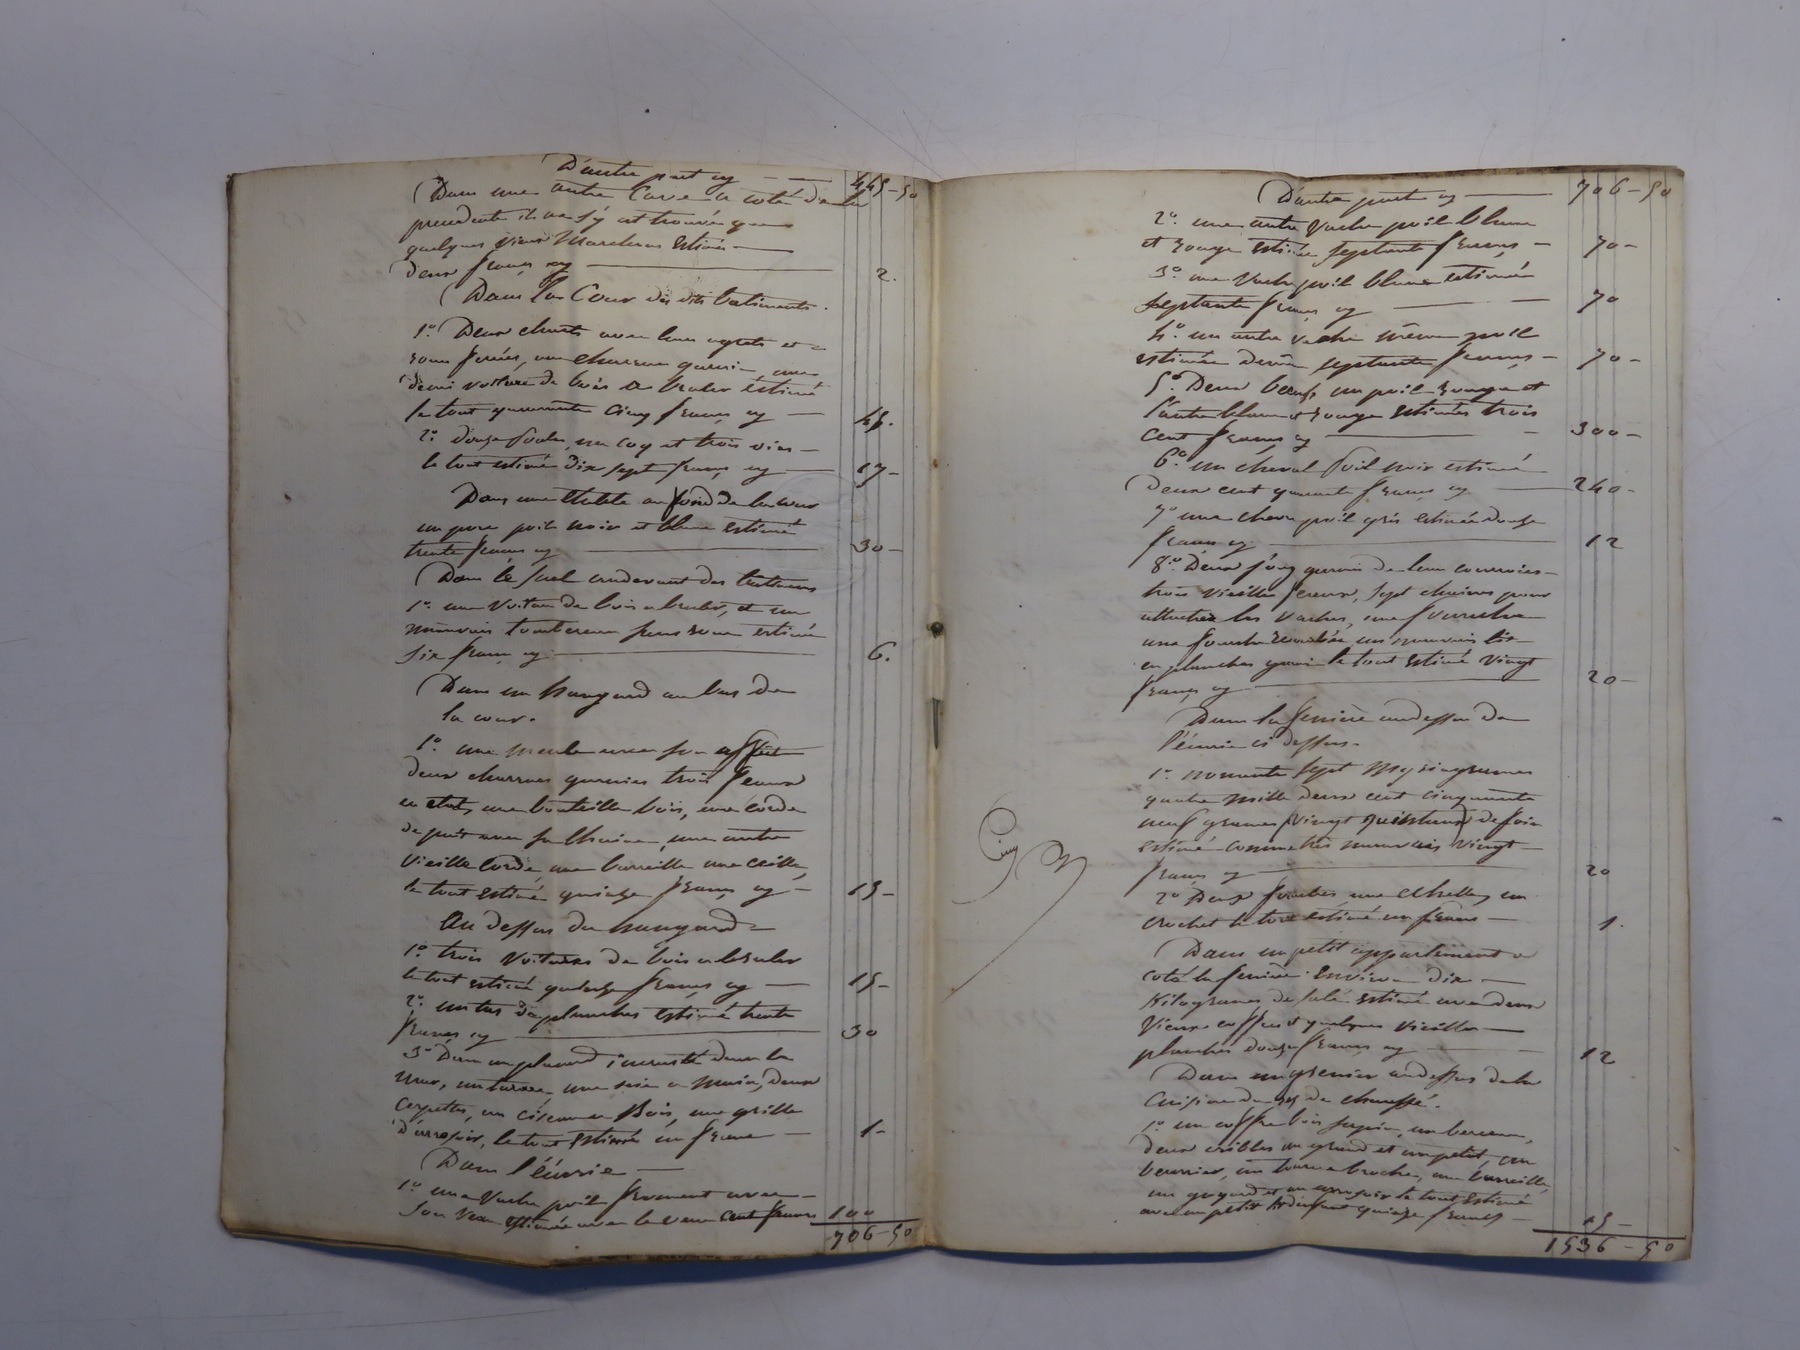 D'autre part cy — 445-50
Dans une autre Cave a coté de la
precedente il ne s'y est trouvée que
quelques vieux Marcheux estimés
deux francs cy — 2.
Dans la Cour des dits batiments.
1º Deux charts avec leurs agrets et
roues ferrées, une charrue garnie, une
demi voiture de bois a bruler estimé
le tout quarante cinq francs cy — 45.
2º douze Poules, un coq et trois oies
le tout estimé dix sept francs cy — 17-
Dans une Etable au fond de la cour
un porc poil noir et blanc estimé
trente francs cy — 30-
Dans le suel au devant des batiments
1º une voiture de bois a bruler, et un
mauvais tombereau sans roue estimé
six francs cy — 6.
Dans un hangard au bas de
la cour.
1º une meule avec son affut
deux charrues garnies trois sceaux
en etat, une bouteille bois, une corde
de puit avec sa chaine, une autre
vieille corde, une bareille une seille,
le tout estimé quinze francs cy — 15-
Au dessus du hangard
1º trois voitures de bois a bruler
le tout estimé quinze francs cy — 15-
2º un tas de planches estimé trente
francs cy — 30
3º Dans un placard incrusté dans le
mur, une scie a main, deux
un ciseau a Bois, une grille
d'arrosoir, le tout estimé un franc — 1-
Dans l'écurie —
1º une Vache poil froment avec
son veau estimée avec le veau cent francs 100
706-50
D'autre part cy — 706-50
2º une autre Vache poil blanc
et rouge estimée septante francs — 70-
3º une Vache poil blanc estimée
septante francs cy — 70
4º un autre vache même poil
estimée septante francs — 70-
5º Deux boeufs, un poil rouge et
l'autre blanc et rouge estimés trois
cent francs cy — 300-
6º un cheval Poil noir estimé
deux cent quarante francs cy — 240-
7º une chevre poil gris estimée douze
francs cy — 12
8º Deux joug garnis de leur courroies
trois vieilles sceaux, sept chaines pour
attacher les vaches, une fourche
une fourche recourbée un mauvais lit
en planches garni le tout estimé vingt
francs cy — 20-
Dans la feniere au dessus de
l'écurie ci dessus.
1º nonante sept Myriagrammes
quatre mille deux cent cinquante
neuf grammes (vingt quintaux) de foin
estimé comme très mauvais vingt
francs cy — 20
2º Deux fourches, une echelle, un
crochet le tout estimé un franc — 1.
Dans un petit appartement a
coté la feniere environ dix
Kilogrames de salé estimé avec deux
vieux coffres et quelques vieilles
planches douze francs cy — 12
Dans un grenier au dessus de la
Cuisine du rez de chaussé.
1º un coffre bois sapin, un berceau,
deux cribles un grand et un petit, un
beurrier, un tourne broche, une bareille,
un goyard et un arrosoir le tout estimé
avec un petit lit d'enfant quinze francs — 15-
1536-50
Cinq